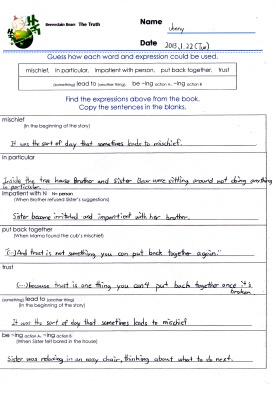 Berenstain Bears The Truth
Name
Date 2013.1.22 (Tue)
Guess how each word and expression could be used.
mischief, in particular, impatient with person, put back together, trust
(something) lead to (another thing), be ~ing action A, ~ing action B
Find the expressions above from the book.
Copy the sentences in the blanks.
mischief
(In the beginning of the story)
It was the sort of day that sometimes leads to mischief.
in particular
Inside the tree house Brother and Sister Bear were sitting around not doing anything
in particular.
Impatient with N N= person
(When Brother refused Sister's suggestions)
Sister became irritated and impatient with her brother.
put back together
(When Mama found the cub's mischief)
"(...)And trust is not something you can put back together again."
trust
(...)because trust is one thing you can't put back together once it's
broken.
(something) lead to (another thing)
(In the beginning of the story)
It was the sort of day that sometimes leads to mischief
be ~ing action A, ~ing action B
(When Sister felt bored in the house)
Sister was relaxing in an easy chair, thinking about what to do next.